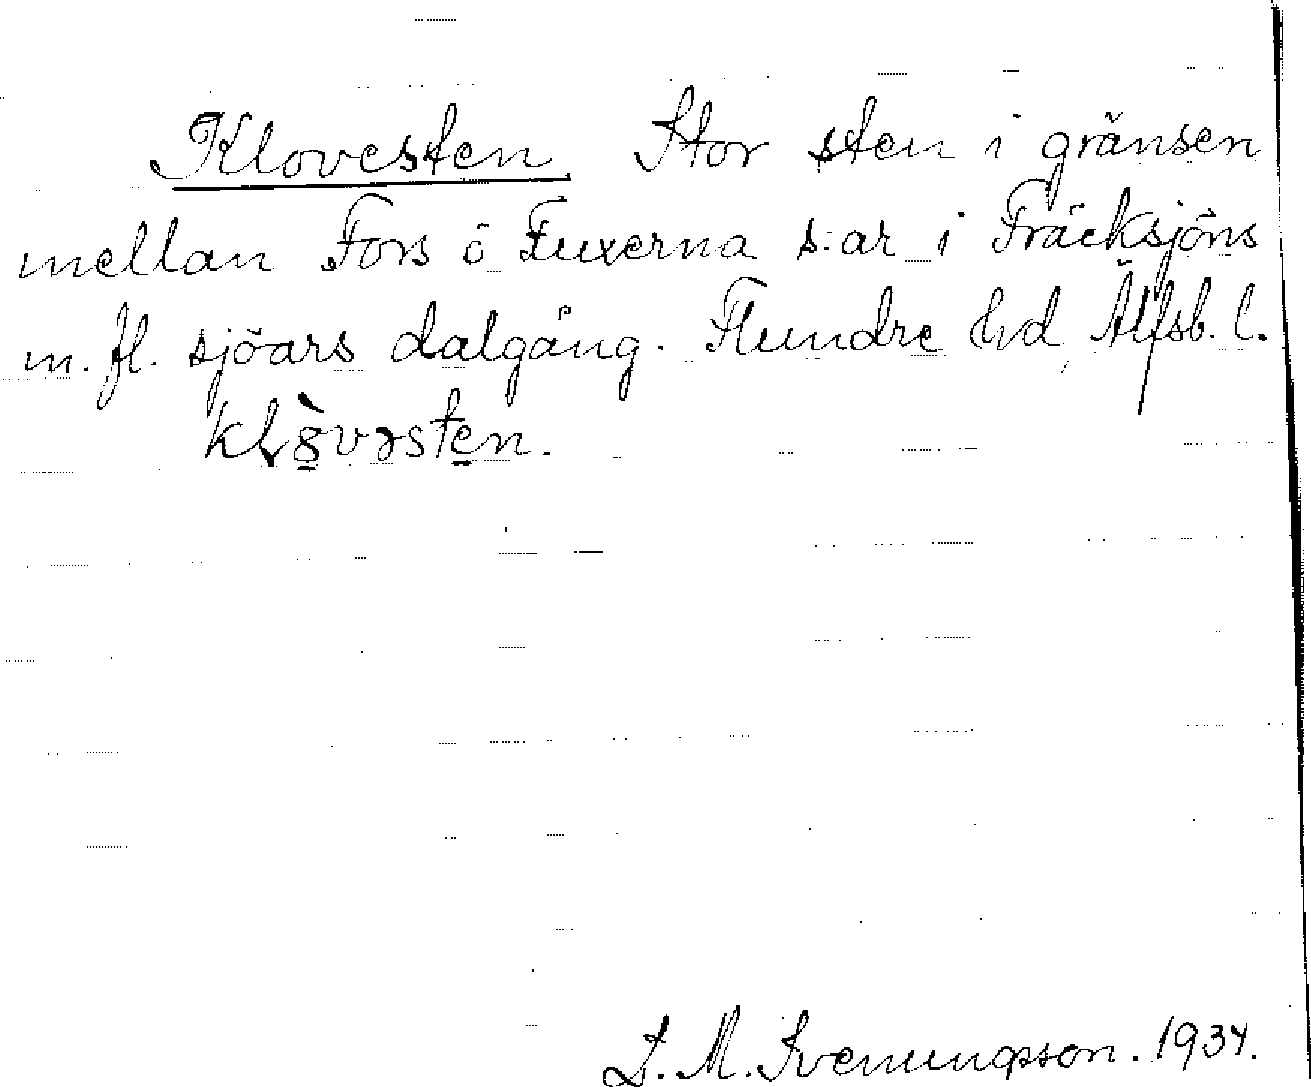 Klovesten Stor sten i gränsen
mellan Fors ö Fuxerna s:ar i Fräcksjöns
m. fl. sjöars dalgång. Flundre hd Älfsb. l.
klòvəsten.
J. M. Svenungsson. 1934.